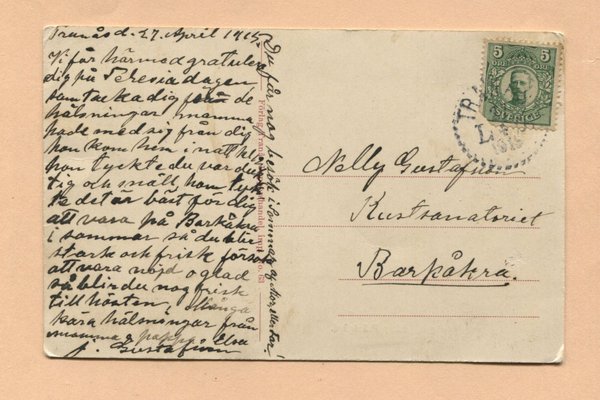 Tranås d. 27 April 1915.
Vi får härmed gratulera
dig på Teresia dagen
samt tacka dig för de
hälsningar mamma
hade med sig från dig
hon kom hem i natt kl
hon tyckte du var duk
tig och snäll, hon tyck
te det är bäst för dig
att vara på Barkåkra
i sommar så du blir
stark och frisk försök
att vara nöjd o glad
så blir du nog frisk
till hösten, Många
kära hälsningar från
mamma o pappa Elsa
J. Gustafsson
Du får nog besök i Sommar af Mor, eller Far!
Förlag
5 5
SVERIGE
TRANÅS
Nelly Gustafsson
Kustsanatoriet
Barkåkra.